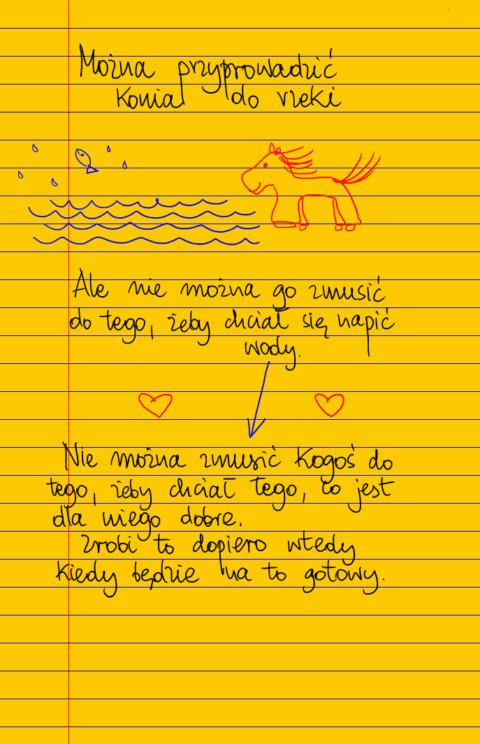 Można przyprowadzić
konia do rzeki
Ale nie można go zmusić
do tego, żeby chciał się napić
wody.
Nie można zmusić kogoś do
tego, żeby chciał tego, co jest
dla niego dobre.
Zrobi to dopiero wtedy
kiedy będzie na to gotowy.